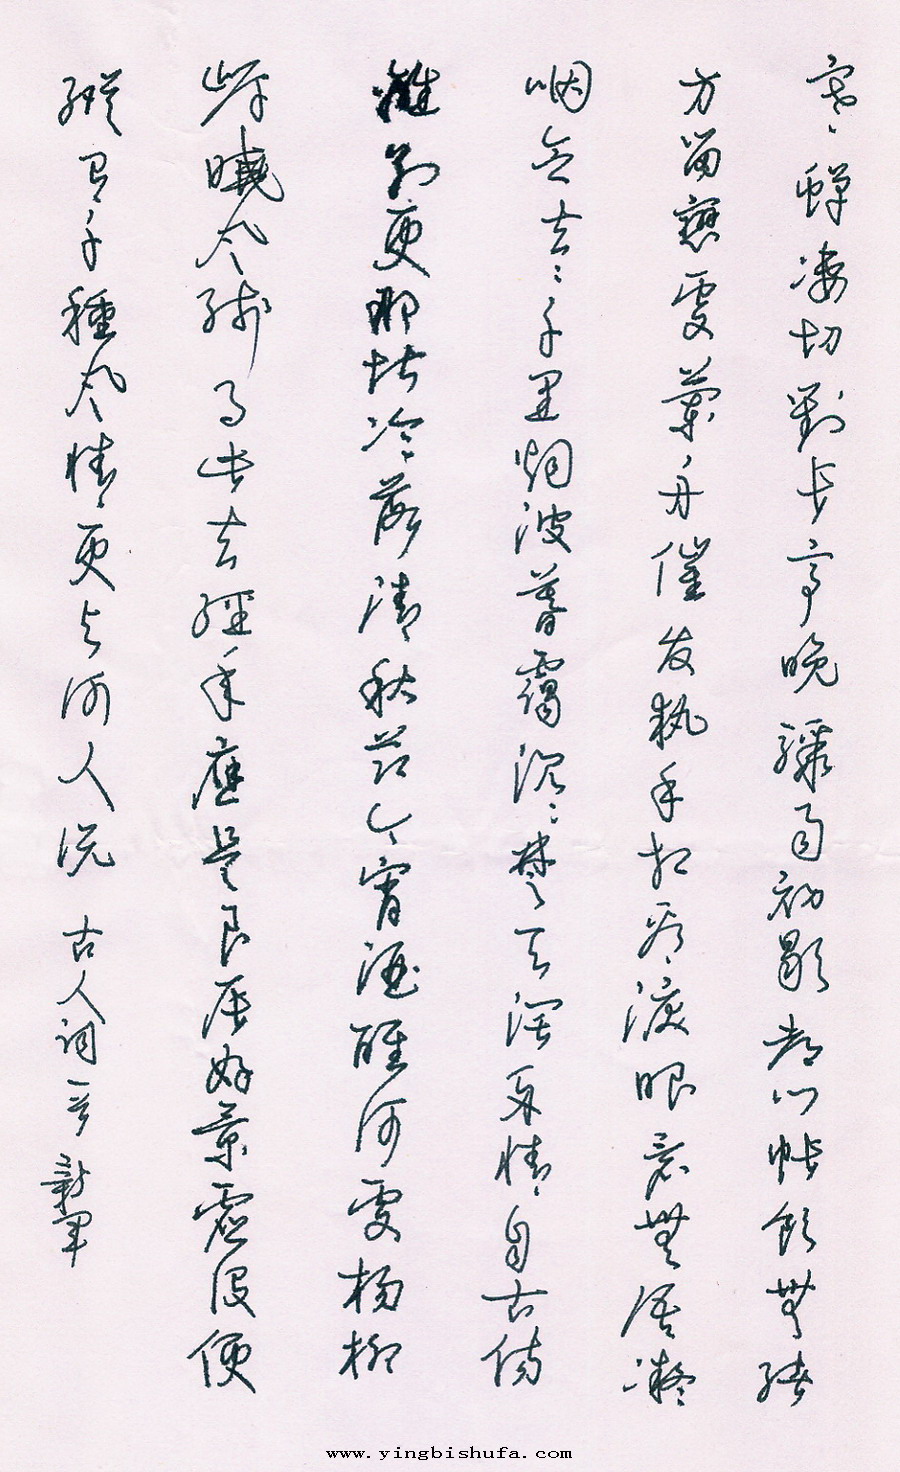 寒蝉凄切對长亭晚驟雨初歇都门帐饮無绪
方留戀處蘭舟催发执手相看淚眼竟無语凝
咽念去去千里烟波暮靄沉沉楚天阔多情自古伤
離别更那堪冷落清秋节今宵酒醒何處杨柳
岸曉风残月此去经年應是良辰好景虚设便
纵有千種风情更与何人说 古人词一首 新军
www.yingbishufa.com